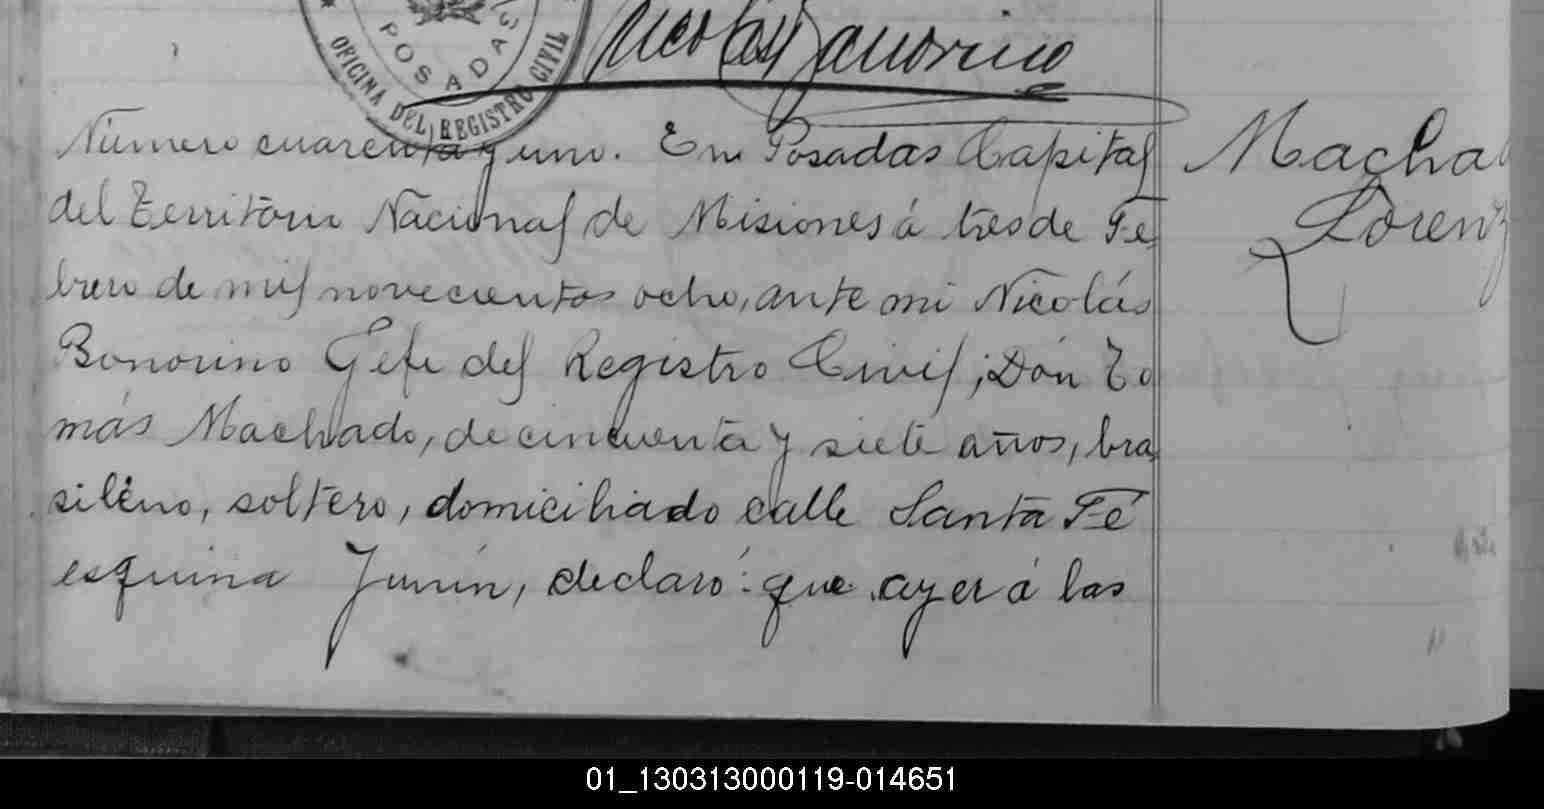 POSADAS
OFICINA DEL REGISTRO CIVIL
Nicolás Bonorino
Número cuarenta y uno. En Posadas Capital
del Territorio Nacional de Misiones á tres de Fe
brero de mil novecientos ocho, ante mi Nicolás
Bonorino Gefe del Registro Civil, Don To
más Machado, de cincuenta y siete años, bra
sileño, soltero, domiciliado calle Santa Fé
esquina Junín, declaró: que ayer á las
Macha
Lorenz
01_130313000119-014651